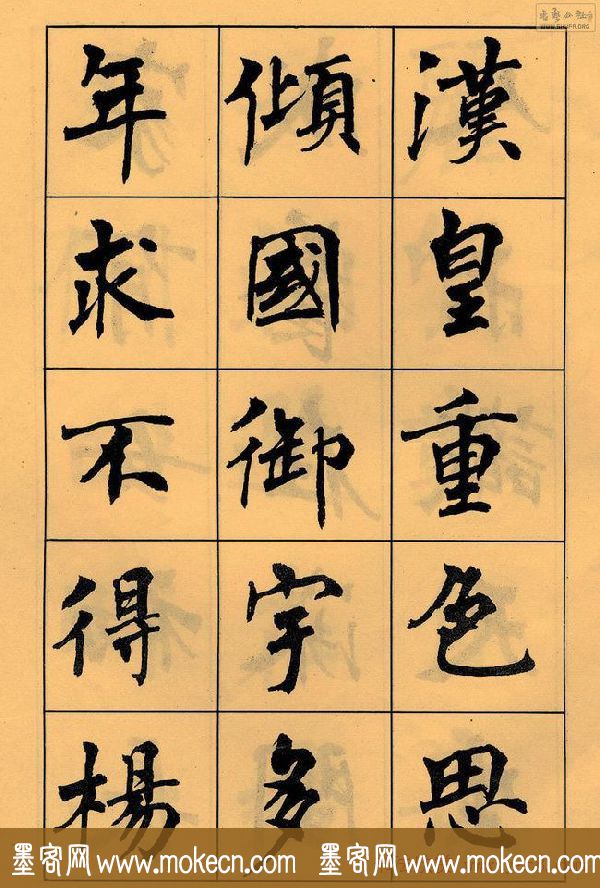 漢皇重色思
傾國御宇多
年求不得楊
墨客网 www.mokecn.com 墨客网 www.mokecn.com